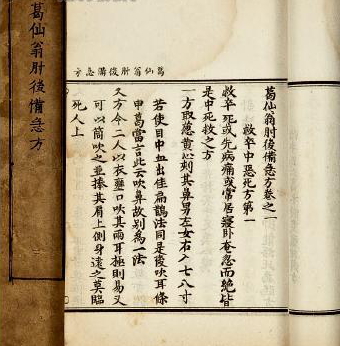 葛仙翁肘後備急方
葛仙翁肘後備急方
葛仙翁肘後備急方卷之一
救卒中惡死方第一
救卒死或先病痛或常居寢卧奄忽而絶皆
是中死救之方
一方取葱黄心刺其鼻男左女右入七八寸
若使目中血出佳扁鵲法同是後吹耳條
中葛當言此云吹鼻故別為一法
又方令二人以衣壅口吹其兩耳極則易又
可以筒吹之並捧其肩上側身遠之莫臨
死人上